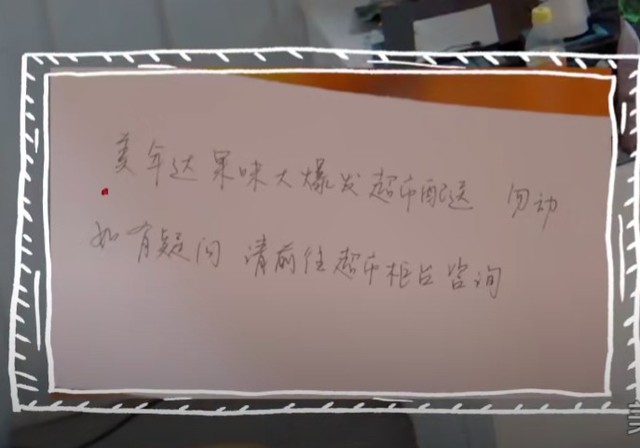 美年达果味大爆发超市配送 勿动
如有疑问 请前往超市柜台咨询